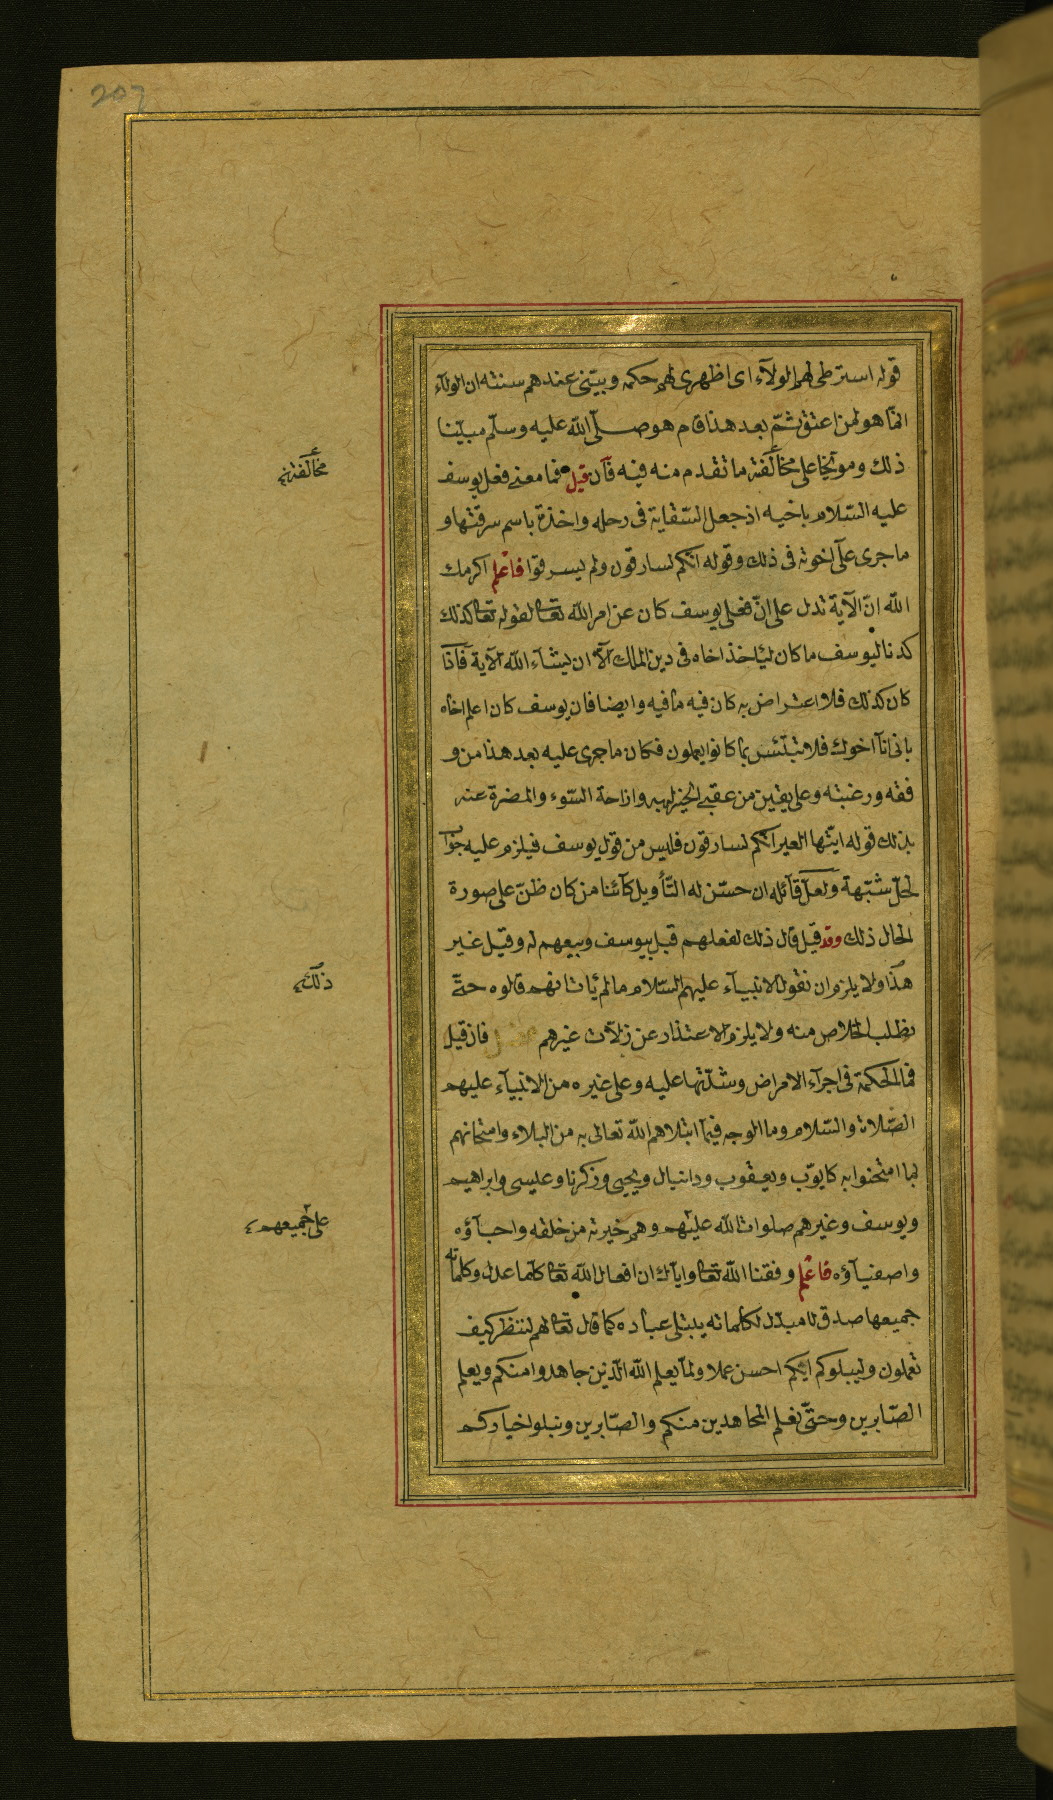 207
قوله اشترطى لهم الولاء اى اظهرى لهم حكمه وبيّنى عندهم سنته ان الولاء
انّما هو لمن اعتق ثمّ بعد هذا قام هو صلّى الله عليه وسلّم مبيّنا
ذلك وموبّخا على مخالفته ما تقدم منه فيه فان قيل فما معنى فعل يوسف
عليه السّلام باخيه اذ جعل السّقاية فى رحله واخذه باسم سرقتها و
ما جرى على اخوته فى ذلك وقوله انّكم لسارقون ولم يسرقوا فاعلم اكرمك
الله انّ الآية تدل على انّ فعل يوسف كان عن امر الله تعا لقوله تعا كذلك
كدنا ليوسف ما كان لياخذ اخاه فى دين الملك الّا ان يشاء الله الآية فاذا
كان كذلك فلا اعتراض به كان فيه ما فيه وايضا فان يوسف كان اعلم اخاه
بانى انا اخوك فلا تبتئس بما كانوا يعملون فكان ما جرى عليه بعد هذا من و
فقه ورغبته وعلى يقين من عقبى الخير له به وازاحة السّوء والمضرة عنه
بذلك قوله ايّتها العير انّكم لسارقون فليس من قول يوسف فيلزم عليه جواب
لحلّ شبهة ولعلّ قائله ان حسّن له التّأويل كائنا من كان ظنّ على صورة
الحال ذلك وقد قيل قال ذلك لفعلهم قبل بيوسف وبيعهم له وقيل غير
هذا ولا يلزم ان نقول الانبياء عليهم السّلام ما لم يأت انهم قالوه حتّى
يطلب الخلاص منه ولا يلزم الاعتذار عن زلّات غيرهم فان قيل
فما الحكمة فى اجراء الامراض وشدّتها عليه وعلى غيره من الانبياء عليهم
الصّلاة والسّلام وما الوجه فيما ابتلاهم الله تعالى به من البلاء وامتحانهم
بما امتحنوا به كايّوب ويعقوب ودانيال ويحيى وزكريا وعيسى وابراهيم
ويوسف وغيرهم صلوات الله عليهم وهم خيرته من خلقه واحبآؤه
واصفيآؤه فاعلم وفقنا الله تعا واياك ان افعال الله تعا كلّها عدل وكلماته
جميعها صدق لا مبدّل لكلماته يبتلى عباده كما قال تعا لهم لننظر كيف
تعملون وليبلوكم ايّكم احسن عملا ولمّا يعلم الله الّذين جاهدوا منكم ويعلم
الصّابرين وحتّى نعلم المجاهدين منكم والصّابرين ونبلوا خياركم
مخالفته
ذلك
على جميعهم